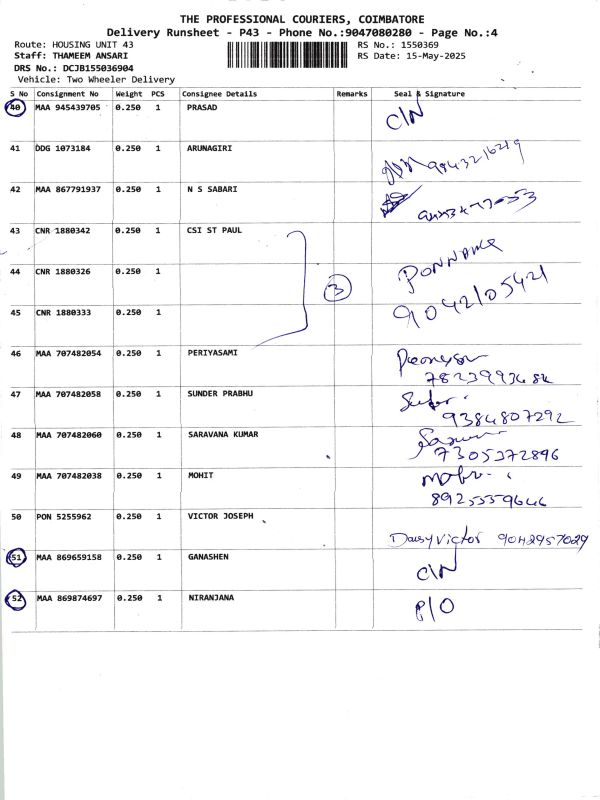 THE PROFESSIONAL COURIERS, COIMBATORE
Delivery Runsheet - P43 - Phone No.:9047080280 - Page No.:4
Route: HOUSING UNIT 43
RS No.: 1550369
Staff: THAMEEM ANSARI
RS Date: 15-May-2025
DRS No.: DCJB155036904
Vehicle: Two Wheeler Delivery
S No Consignment No Weight PCS Consignee Details Remarks Seal & Signature
40 MAA 945439705 0.250 1 PRASAD C/N
41 DDG 1073184 0.250 1 ARUNAGIRI
42 MAA 867791937 0.250 1 N S SABARI
43 CNR 1880342 0.250 1 CSI ST PAUL
44 CNR 1880326 0.250 1 3 PONNAMA
45 CNR 1880333 0.250 1 9042105421
46 MAA 707482054 0.250 1 PERIYASAMI
47 MAA 707482058 0.250 1 SUNDER PRABHU
9384807292
48 MAA 707482060 0.250 1 SARAVANA KUMAR
7305372896
49 MAA 707482038 0.250 1 MOHIT
8925559646
50 PON 5255962 0.250 1 VICTOR JOSEPH
Daisy Victor 9042957029
51 MAA 869659158 0.250 1 GANASHEN C/N
52 MAA 869874697 0.250 1 NIRANJANA P/O